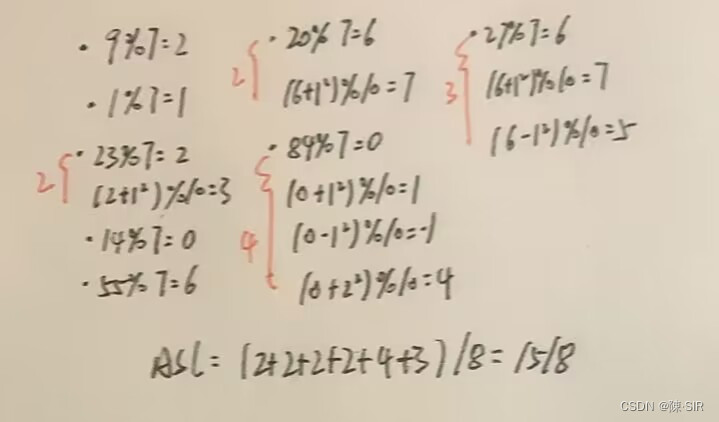 · 9%7=2
· 1%7=1
2
· 23%7=2
(2+1²)%10=3
· 14%7=0
· 55%7=6
2
· 20%7=6
(6+1²)%10=7
4
· 84%7=0
(0+1²)%10=1
(0-1²)%10=-1
(0+2²)%10=4
3
· 27%7=6
(6+1²)%10=7
(6-1²)%10=5
ASL=(2+2+2+2+4+3)/8=15/8
CSDN @陳·SIR